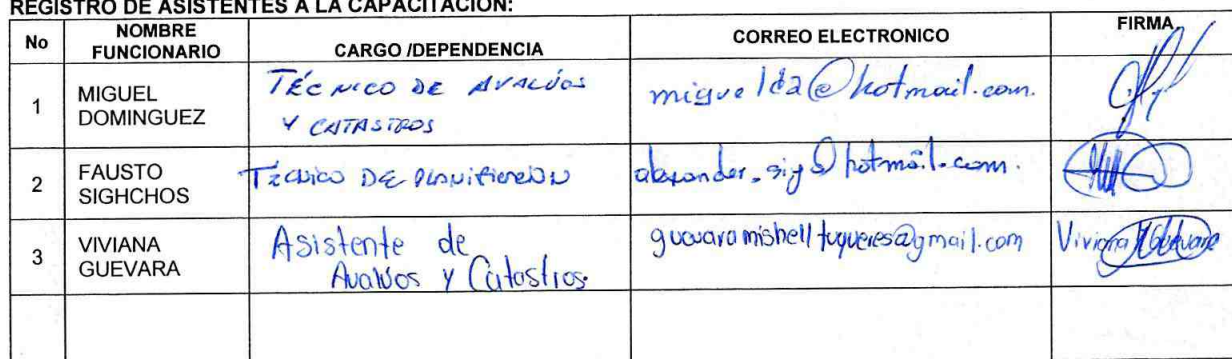 REGISTRO DE ASISTENTES A LA CAPACITACION:
No NOMBRE FUNCIONARIO CARGO /DEPENDENCIA CORREO ELECTRONICO FIRMA
1 MIGUEL DOMINGUEZ TÉCNICO DE AVALÚOS Y CATASTROS miguelda@hotmail.com.
2 FAUSTO SIGHCHOS TÉCNICO DE PLANIFICACION alexander_sig@hotmail.com.
3 VIVIANA GUEVARA Asistente de Avalúos y Catastros. guevaramishelltuqueres@gmail.com Viviana Guevara